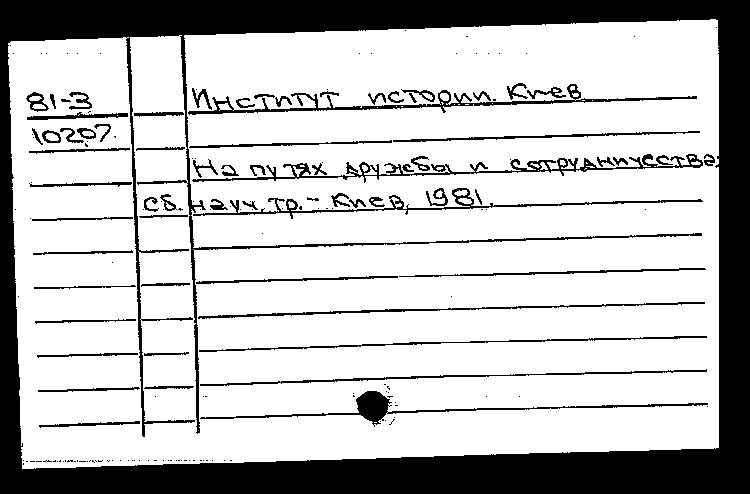 81-3 Институт истории. Киев
10207.
На путях дружбы и сотрудничества:
сб. науч. тр. - Киев, 1981.